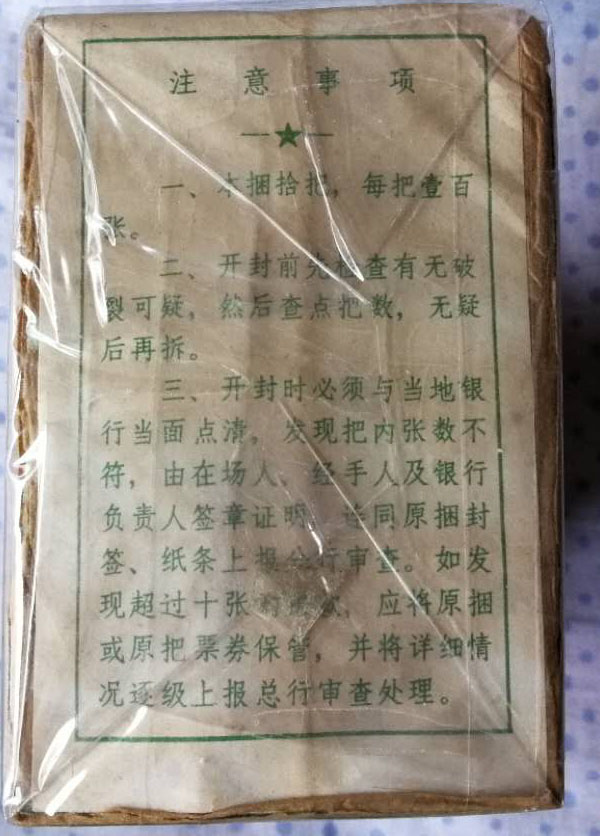 注意事项
一、本捆拾把，每把壹百
张。
二、开封前先检查有无破
裂可疑，然后查点把数，无疑
后再拆。
三、开封时必须与当地银
行当面点清，发现把内张数不
符，由在场人、经手人及银行
负责人签章证明，连同原捆封
签、纸条上报总行审查。如发
现超过十张 应将原捆
或原把票券保管，并将详细情
况逐级上报总行审查处理。